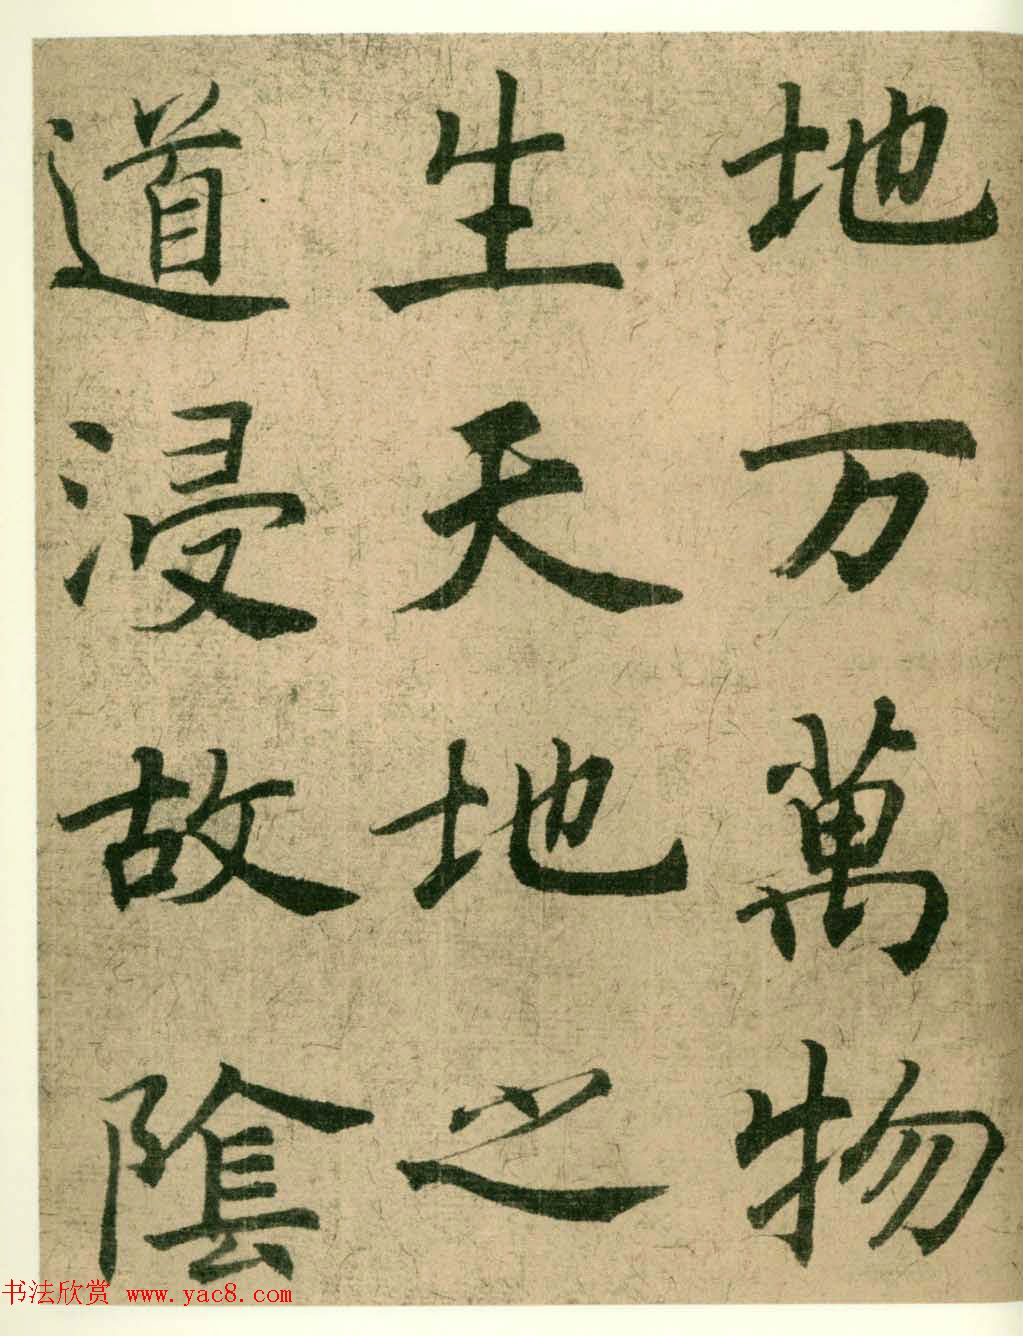 地万萬物
生天地之
道浸故隂
书法欣赏 www.yac8.com